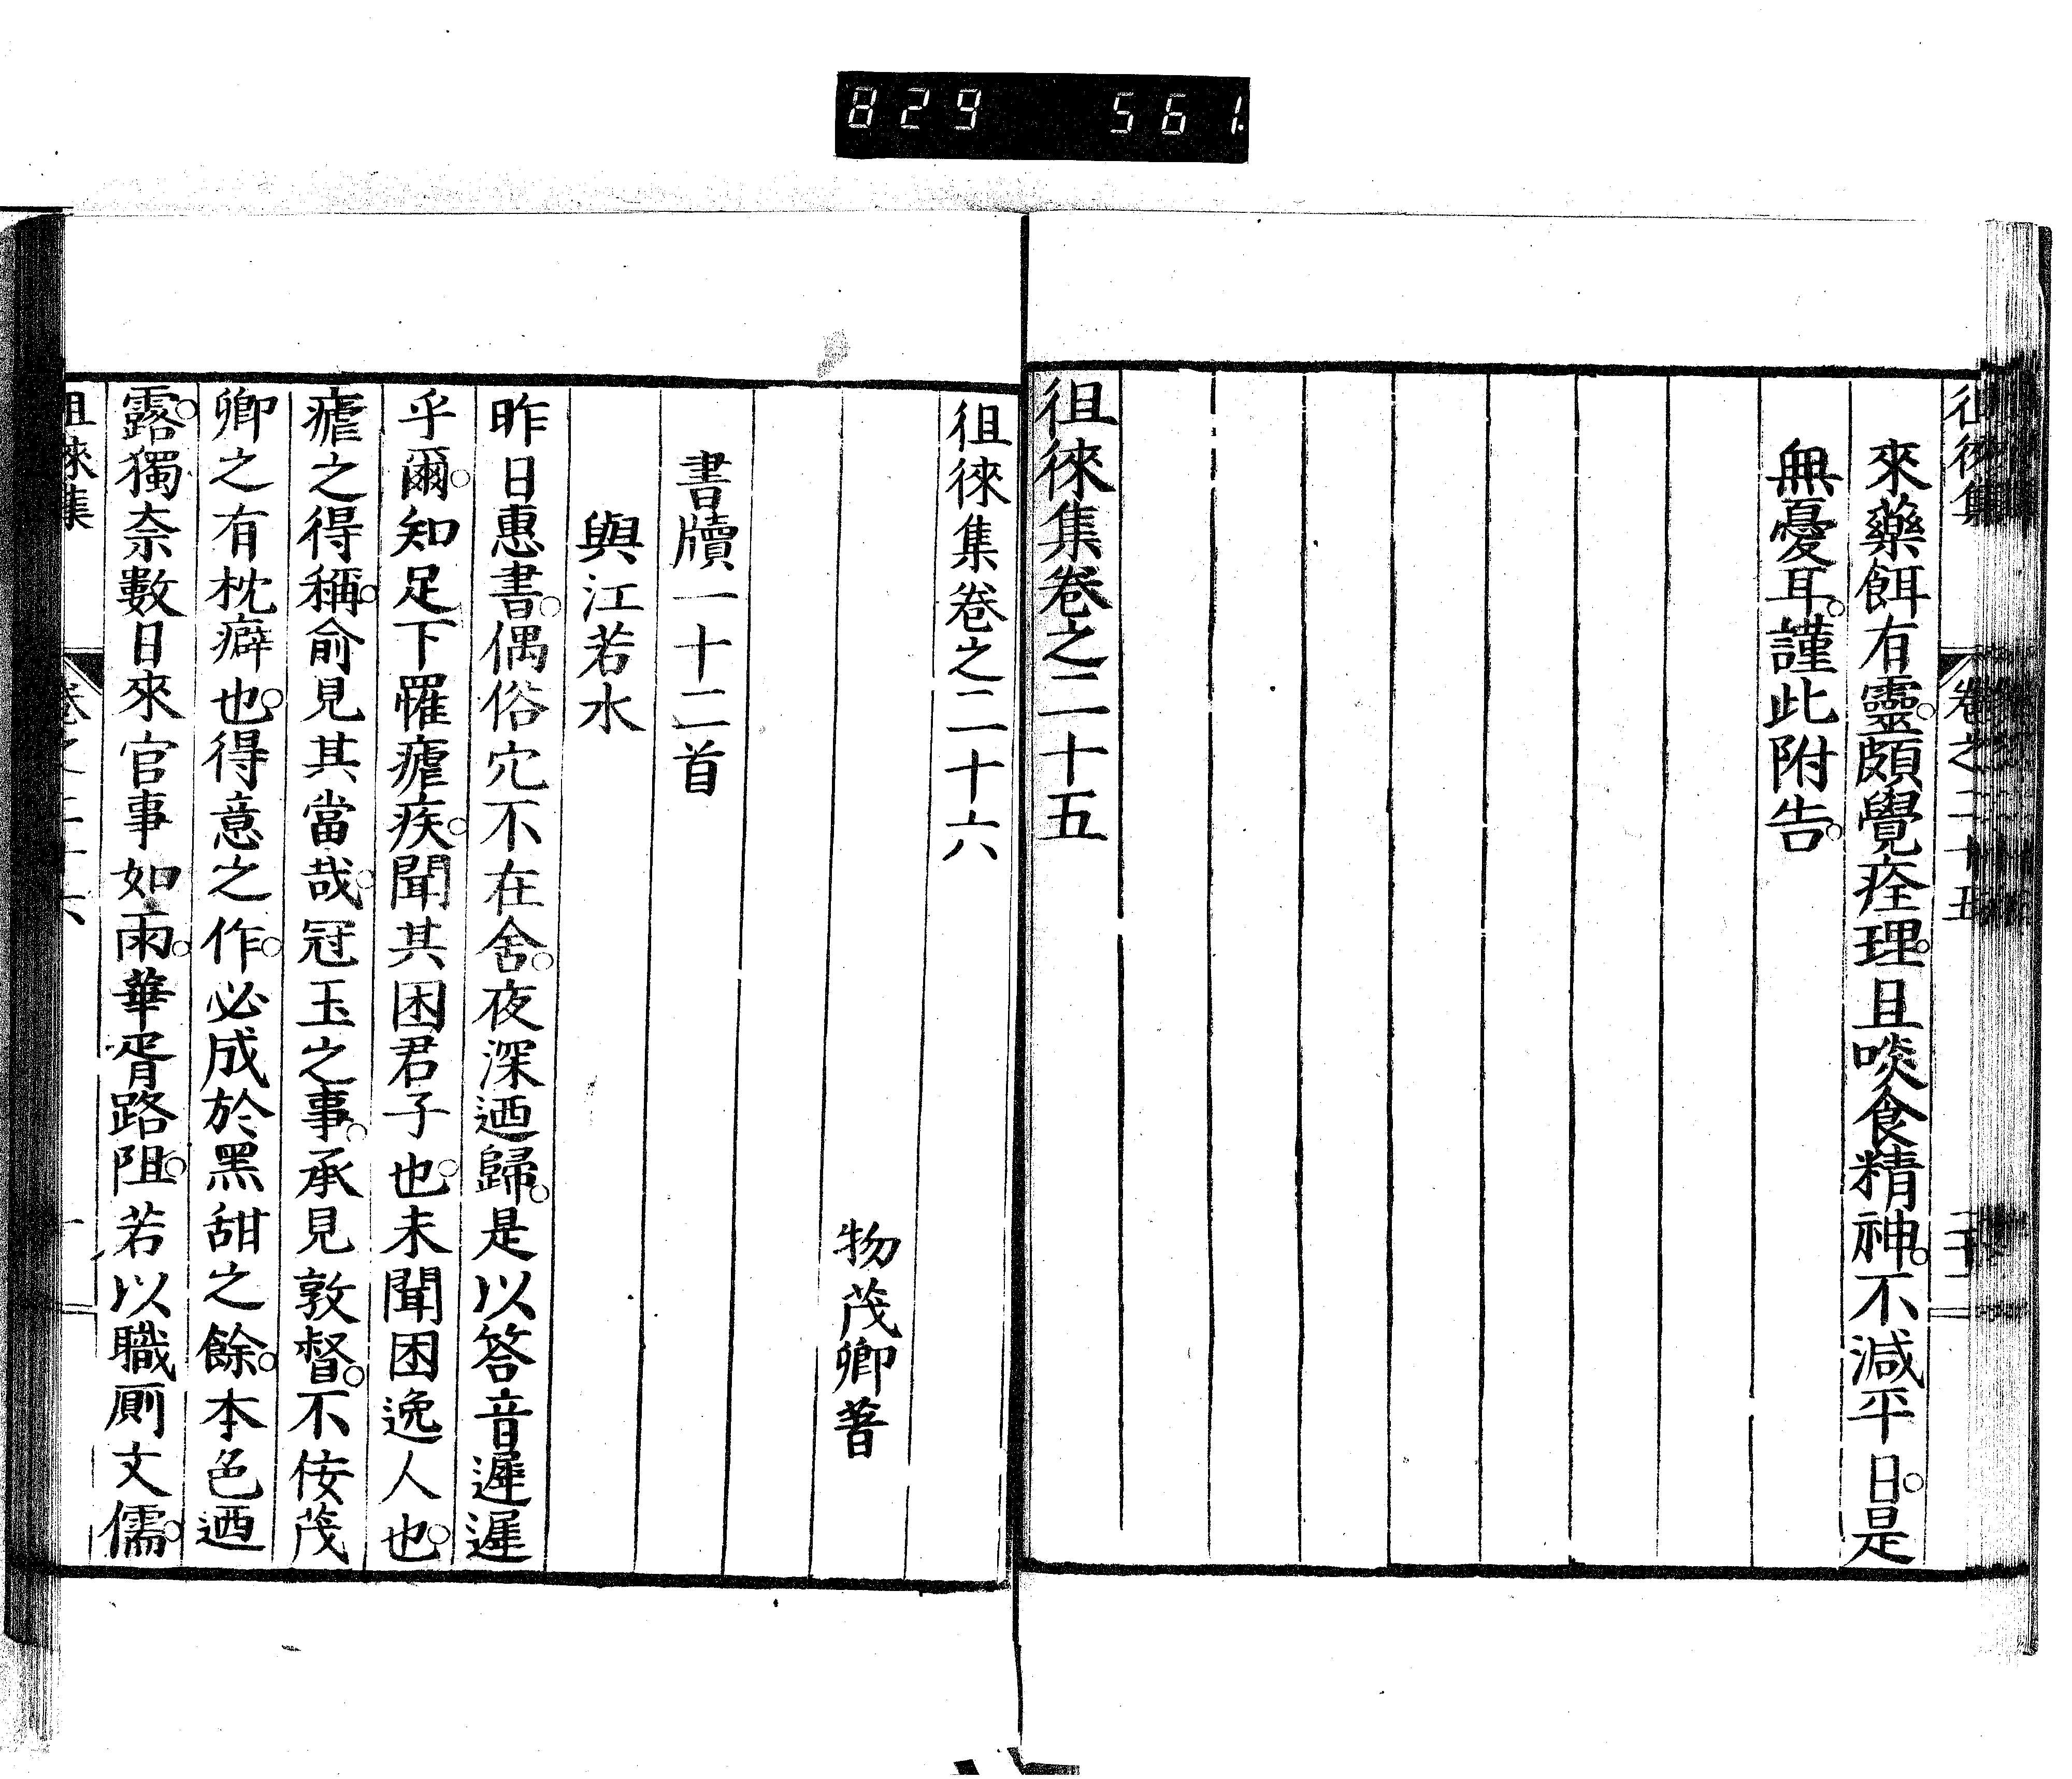 829 561
徂徠集 卷之二十五
來藥餌有靈。頗覺痊理。且啖食精神。不減平日。是
無憂耳。謹此附告。
徂徠集卷之二十五
徂徠集卷之二十六
物茂卿著
書牘一十二首
與江若水
昨日惠書。偶俗冗不在舍。夜深迺歸。是以答音遲遲
乎爾。知足下罹瘧疾。聞其困君子也。未聞困逸人也。
瘧之得稱。俞見其當哉。冠玉之事。承見敦督。不侫茂
卿之有枕癖也。得意之作。必成於黑甜之餘。本色迺
露。獨奈數日來官事如雨。華胥路阻。若以職厠文儒。
徂徠集 卷之二十六 一